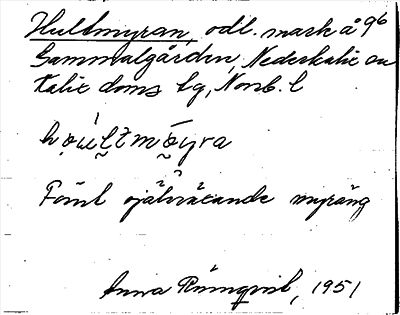 Hultmyran, odl. mark å 96
Gammalgården, Nederkalix sn
Kalix doms. tg, Norrb. l
Förut självväxande myräng
Anna Rönnqvist, 1951